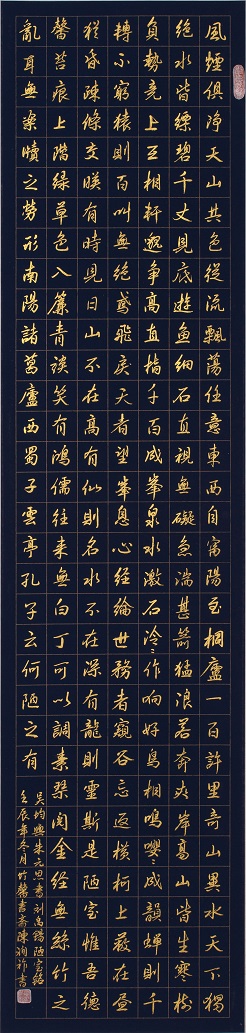 風煙俱净天山共色從流飄蕩任意東西自富陽至桐廬一百許里奇山異水天下獨
絶水皆縹碧千丈見底遊魚細石直視無礙急湍甚箭猛浪若奔夾岸高山皆生寒樹
負勢競上互相軒邈爭高直指千百成峯泉水激石泠々作响好鳥相鳴嚶々成韻蟬則千
轉不窮猿則百叫無絶鳶飛戾天者望峯息心經綸世務者窺谷忘返橫柯上蔽在晝
猶昏疎條交映有時見日山不在高有仙則名水不在深有龍則靈斯是陋室惟吾德
馨苔痕上階緑草色入簾青談笑有鴻儒往来無白丁可以調素琴閲金經無絲竹之
亂耳無案牘之勞形南陽諸葛廬西蜀子雲亭孔子云何陋之有
吴均與朱元思書劉禹錫陋室銘
壬辰年冬月竹馨書齋陳湘書